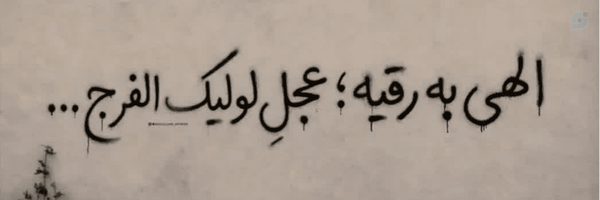 الهی به رقیه؛ عجلِ لولیک الفرج...